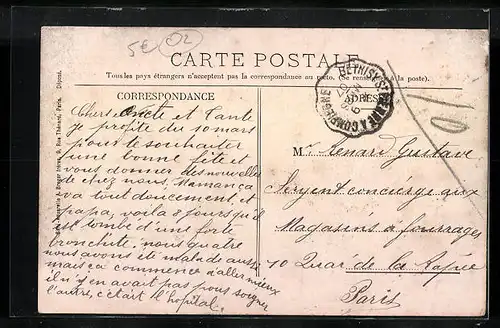 5€ (02)
CARTE POSTALE
Tous les pays étrangers n'acceptent pas la correspondance au recto. (Se renseigner à la poste).
CORRESPONDANCE
ADRESSE
BÉTHISY-ST À COMPIÈGNE
10
Chers Oncle et Tante
je profite du 10 mars
pour te souhaiter
une bonne fête et
vous donner des nouvelles
de chez nous. Maman ça
va tout doucement, et
papa, voila 8 jours qu'il
est tombé d'une forte
bronchite. nous quatre
nous avons été malade aussi
mais ça commence a aller mieux
il n'y en avait pas pour soigner
l'autre, c'était l'hopital.
M Gustave
Sergent concierge aux
Magasins à fourrages
10 Quai de la Rapée
Paris
Berger frères, 9, Rue Thénard, Paris. Déposé.